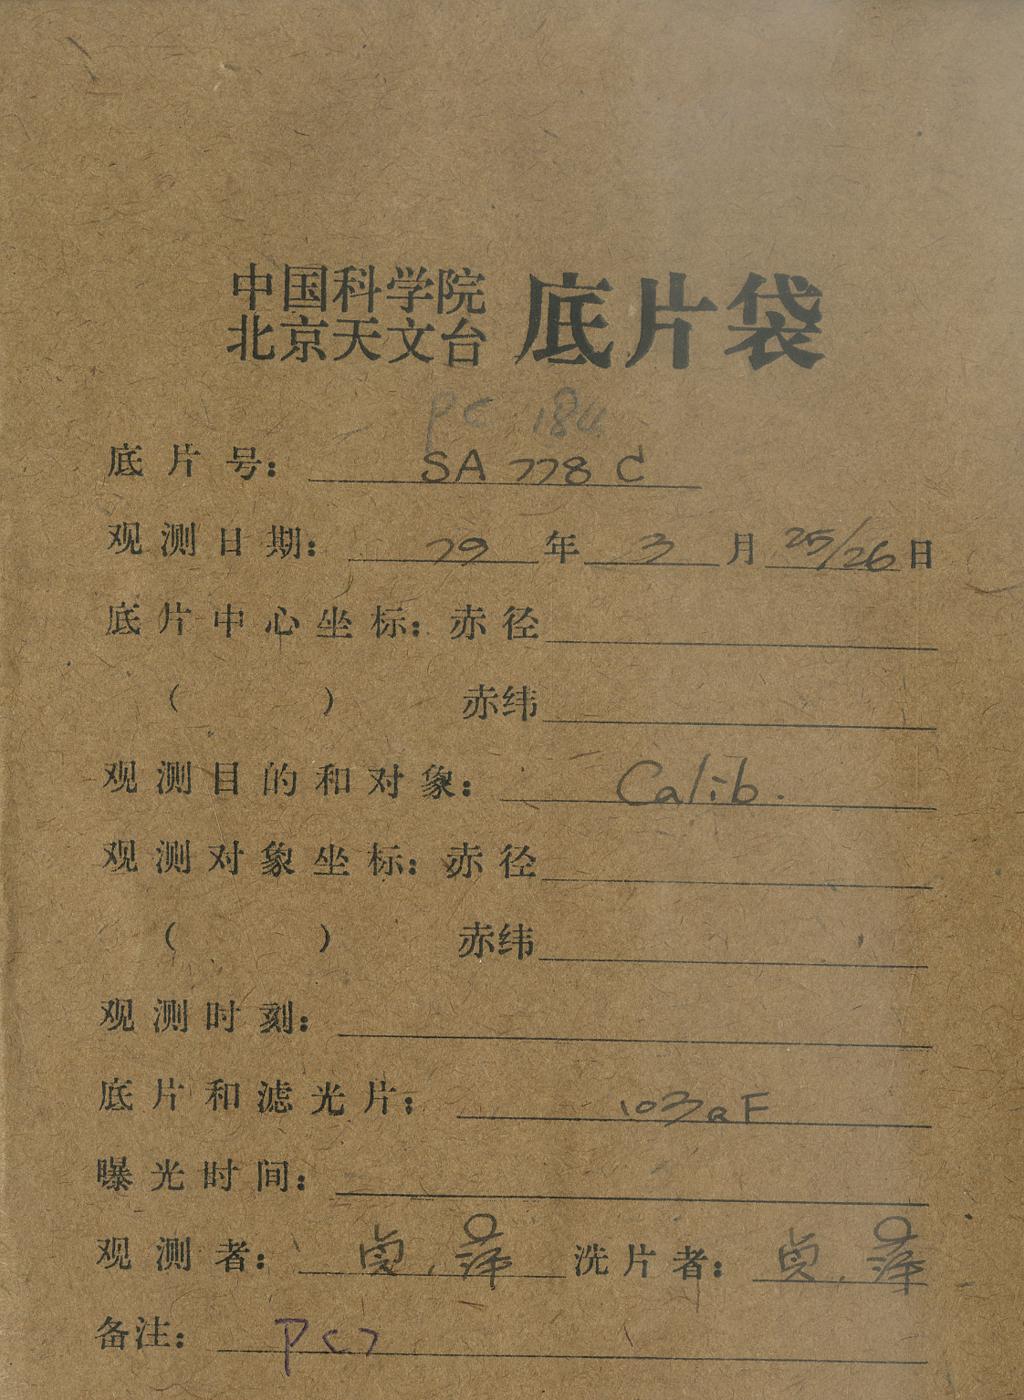 中国科学院
北京天文台 底片袋
PC 184
底片号： SA 778 C
观测日期： 79 年 3 月 25/26 日
底片中心坐标：赤径
（ ） 赤纬
观测目的和对象： Calib.
观测对象坐标：赤径
（ ） 赤纬
观测时刻：
底片和滤光片： 103aF
曝光时间：
观测者： 贞. 萍 洗片者： 贞. 萍
备注： PC7